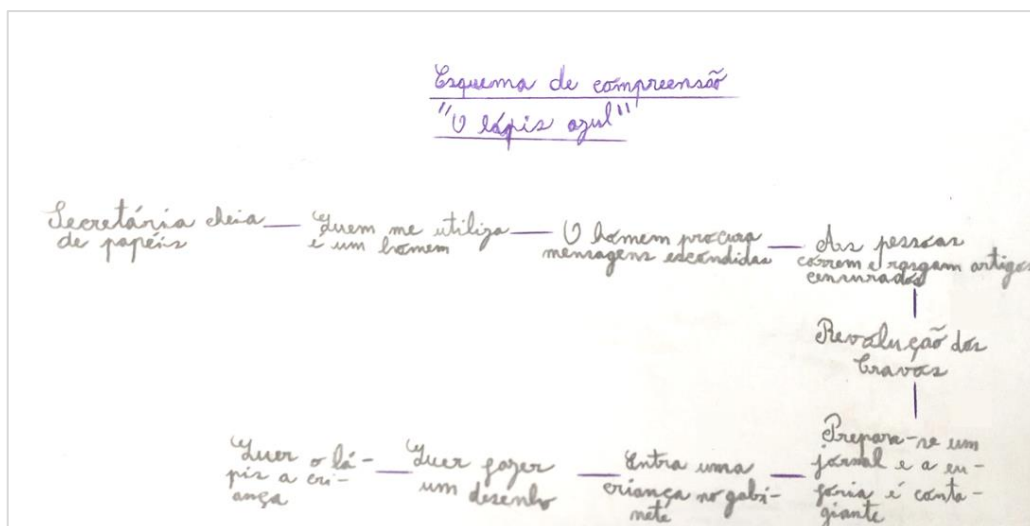 Esquema de compreensão
"O lápis azul"
Secretária cheia
de papéis
Quem me utiliza
é um homem
O homem procura
mensagens escondidas
As pessoas
correm e rasgam artigos
censurados
Revolução dos
Cravos
Prepara-se um
jornal e a eu-
foria é conta-
giante
Entra uma
criança no gabi-
nete
Quer fazer
um desenho
Quer o lá-
pis a cri-
ança